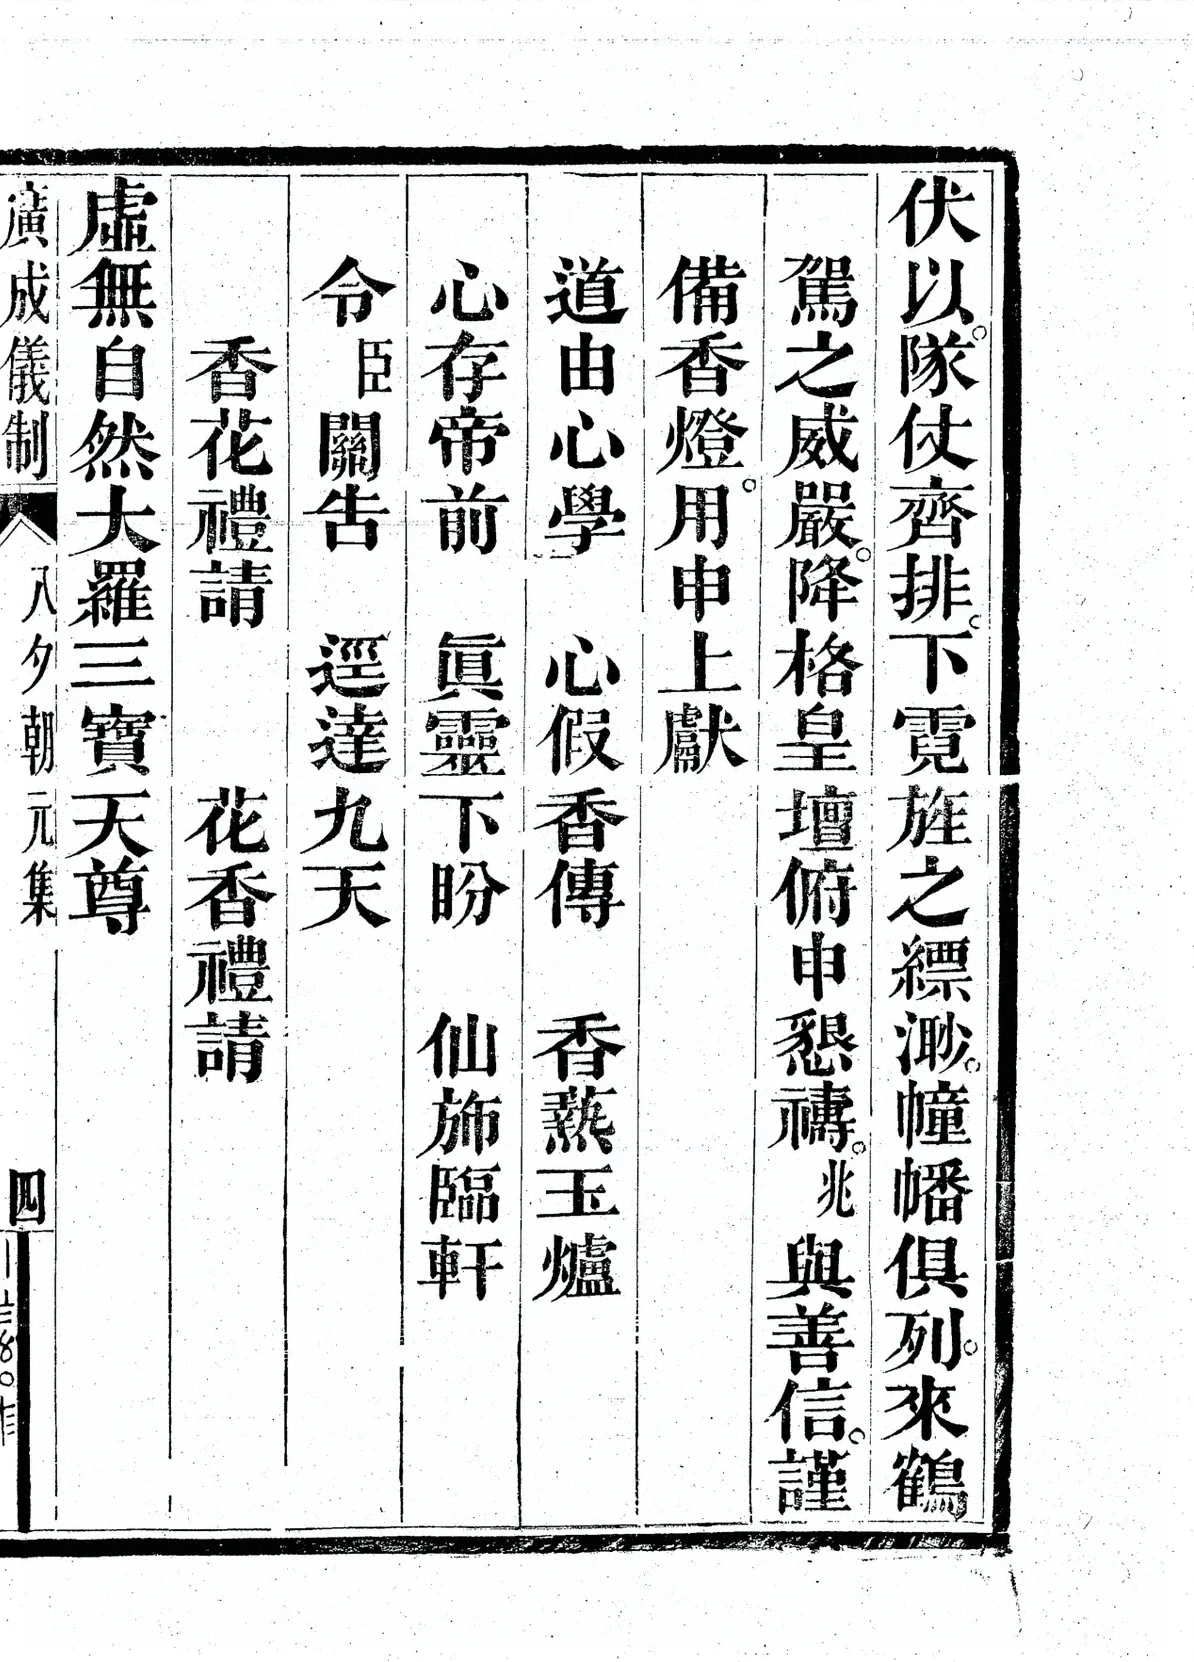 伏以。隊仗齊排。下霓旌之縹渺。幢幡俱列。來鶴
駕之威嚴。降格皇壇俯申懇禱。兆與善信。謹
備香燈。用申上獻
道由心學　心假香傳　香爇玉爐
心存帝前　眞靈下盼　仙斾臨軒
令臣關告　逕達九天
香花禮請　花香禮請
虛無自然大羅三寶天尊
廣成儀制　八夕朝元集　四